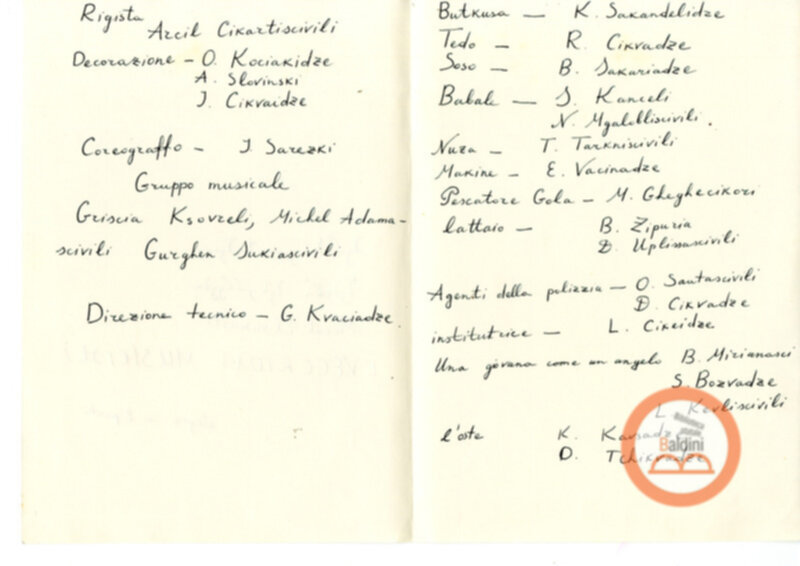 Rigista
Arcil Cikartiscivili
Decorazione - O. Kociakidze
A. Slovinski
J. Cikvaidze
Coreograffo - J Sarezki
Gruppo musicale
Griscia Ksovreli, Michel Adama-
scivili Gurghen Sukiascivili
Direzione tecnico - G. Kvaciadze.
Butkusa - K. Sakandelidze
Tedo - R. Cikvadze
Soso - B. Sakariadze
Babale - S. Kanceli
N. Mgalobliscivili.
Nuza - T. Tarkniscivili
Makine - E. Vacinadze
Pescatore Gola - M. Gheghecikori
lattaio - B. Zipuria
D. Uplissascivili
Agenti della polizzia - O. Sautascivili
D. Cikvadze
institutrice - L. Cikeidze
Una giovana come un angelo B. Mirianasci
S. Bozvadze
L. Kevliscivili
l'oste K. Kavsadz
D. Tchikvadze
Baldini